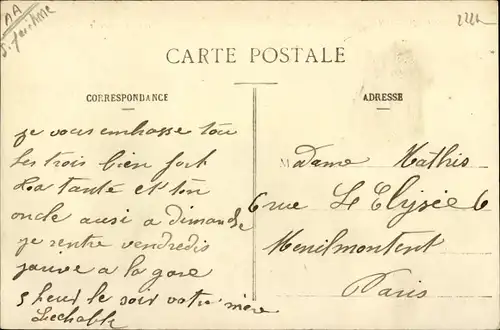 AA
222k
CARTE POSTALE
CORRESPONDANCE
ADRESSE
je vous embrasse tou
les trois bien fort
la tante et ton
oncle ausi a dimanche
je rentre vendredis
jarive a la gare
5 heur le soir votre mère
Madame Mathis
6 rue L'Elysée 6
Menilmontent
Paris